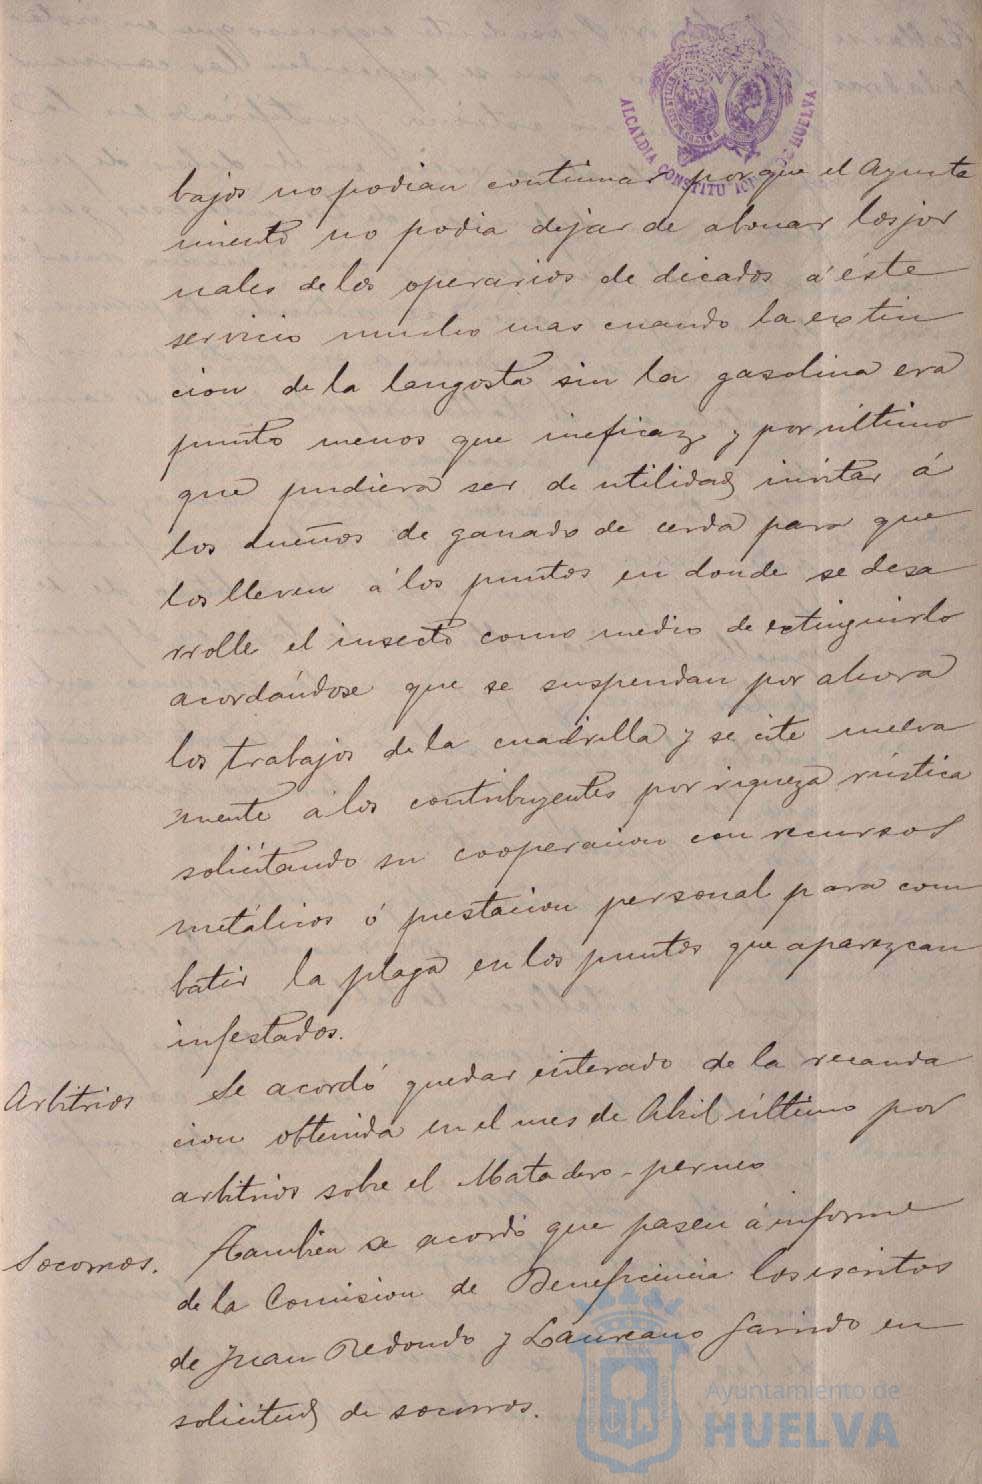 ALCALDIA CONSTITUCIONAL DE HUELVA
bajos no podian continuar porque el Ayunta
miento no podia dejar de abonar los jor
nales de los operarios de dicados á éste
servicio mucho mas cuando la extin
cion de la langosta sin la gasolina era
punto menos que ineficaz y por último
que pudiera ser de utilidad invitar á
los dueños de ganado de cerda para que
los lleven á los puntos en donde se desa
rrolle el insecto como medio de extinguirlo
acordándose que se suspendan por ahora
los trabajos de la cuadrilla y se cite nueva
mente á los contribuyentes por riqueza rústica
solicitando su cooperacion con recursos
metálicos ó prestacion personal para com
batir la plaga en los puntos que aparezcan
infestados.
Arbitrios Se acordó quedar enterado de la recauda
cion obtenida en el mes de Abril último por
arbitrios sobre el Matadero-perneo
Socorros. Tambien se acordó que pasen á informe
de la Comision de Beneficencia los escritos
de Juan Redondo y Laureano Garrido en
solicitud de socorros.
Ayuntamiento de
HUELVA